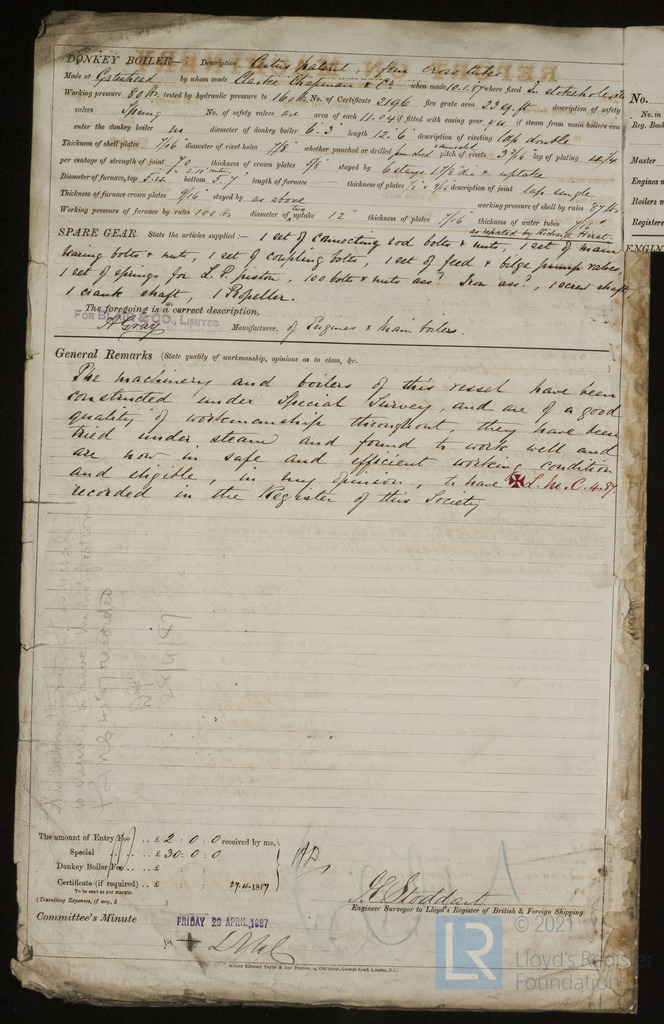 DONKEY BOILER— Description Clarkes patent, four cross tubes
Made at Gateshead by whom made Clarke Chapman & Co. when made 10.1.87 where fixed In stokehole
Working pressure 80 lbs tested by hydraulic pressure to 160 lbs No. of Certificate 2196 fire grate area 23 sq. ft description of safety
valves Spring No. of safety valves area of each 11.04 if fitted with easing gear yes if steam from main boilers can
enter the donkey boiler no diameter of donkey boiler 6.3 length 12.6 description of riveting lap double
Thickness of shell plates 7/16 diameter of rivet holes 7/8 whether punched or drilled punched pitch of rivets lap of plating
per centage of strength of joint 70 thickness of crown plates 5/8 stayed by 6 stays 1 7/8 dia & uptake
Diameter of furnace, top bottom 5.7 length of furnace thickness of plates description of joint lap single
Thickness of furnace crown plates 9/16 stayed by as above working pressure of shell by rules 87 lbs
Working pressure of furnace by rules 100 lbs diameter of uptake 12" thickness of plates 7/16 thickness of water tubes
as repaired by Richard Hirst.
SPARE GEAR. State the articles supplied:— 1 set of connecting rod bolts & nuts, 1 set of main
bearing bolts & nuts, 1 set of coupling bolts, 1 set of feed & bilge pump valves,
1 set of springs for L.P. piston, 100 bolts & nuts assd. Iron assd., 1 screw shaft
1 crank shaft, 1 Propeller.
The foregoing is a correct description,
FOR BLAIR & CO., LIMITED.
A Gray Manufacturer. of Engines & Main boilers.
General Remarks (State quality of workmanship, opinions as to class, &c.
The machinery and boilers of this vessel have been
constructed under Special Survey, and are of a good
quality of workmanship throughout, they have been
tried under steam and found to work well and
are now in safe and efficient working condition
and eligible, in my opinion, to have ✠ L.M.C. 4.87.
recorded in the Register of this Society
The amount of Entry Fee .. £ 2 : 0 : 0 received by me,
Special .. £ 30 : 0 : 0
Donkey Boiler Fee .. £ : :
Certificate (if required) .. £ : : 27.4.1887
To be sent as per margin.
(Travelling Expenses, if any, £ )
Committee's Minute
FRIDAY 29 APRIL, 1887
+ LMC
J.C. Stoddart
Engineer Surveyor to Lloyd's Register of British & Foreign Shipping
Robert Edmund Taylor & Son Printers, 19, Old Street, Goswell Road, London, E.C.
No.
No. in
Reg. Book
Master
Engines m
Boilers m
Registere
ENGIN
LR
© 2021
Lloyd's Register
Foundation